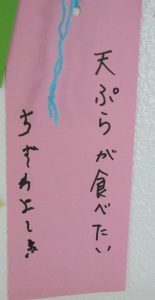 天ぷらが食べたい
ちずわよしき